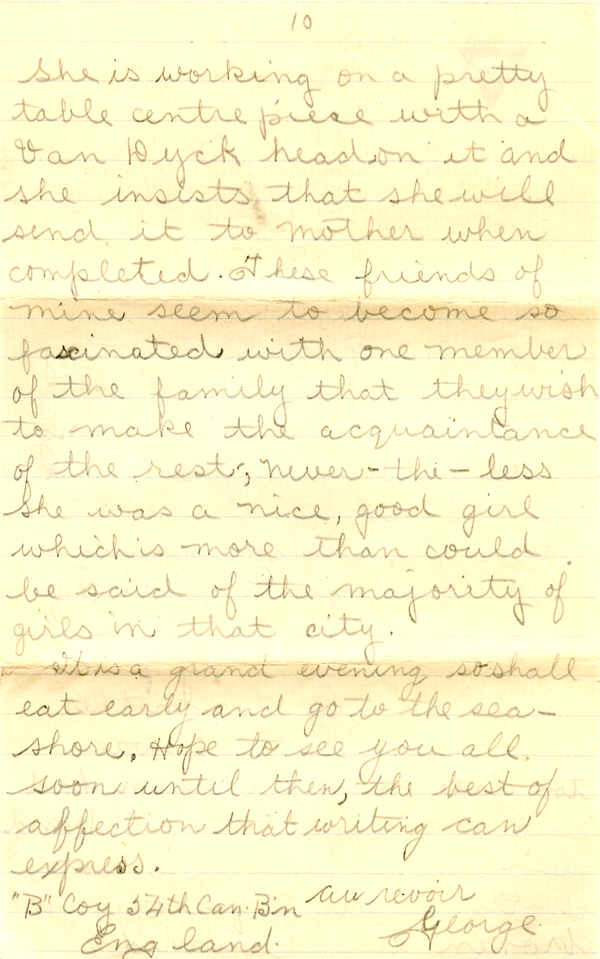 10
She is working on a pretty
table centre piece with a
Van Dyck head on it and
she insists that she will
send it to mother when
completed. These friends of
mine seem to become so
fascinated with one member
of the family that they wish
to make the acquaintance
of the rest, never-the-less
She was a nice, good girl
which is more than could
be said of the majority of
girls in that city.
It is a grand evening so shall
eat early and go to the sea-
shore. Hope to see you all
soon until then, the best of
affection that writing can
express.
au revoir
"B" Coy 54th Can. B'n
George
England.